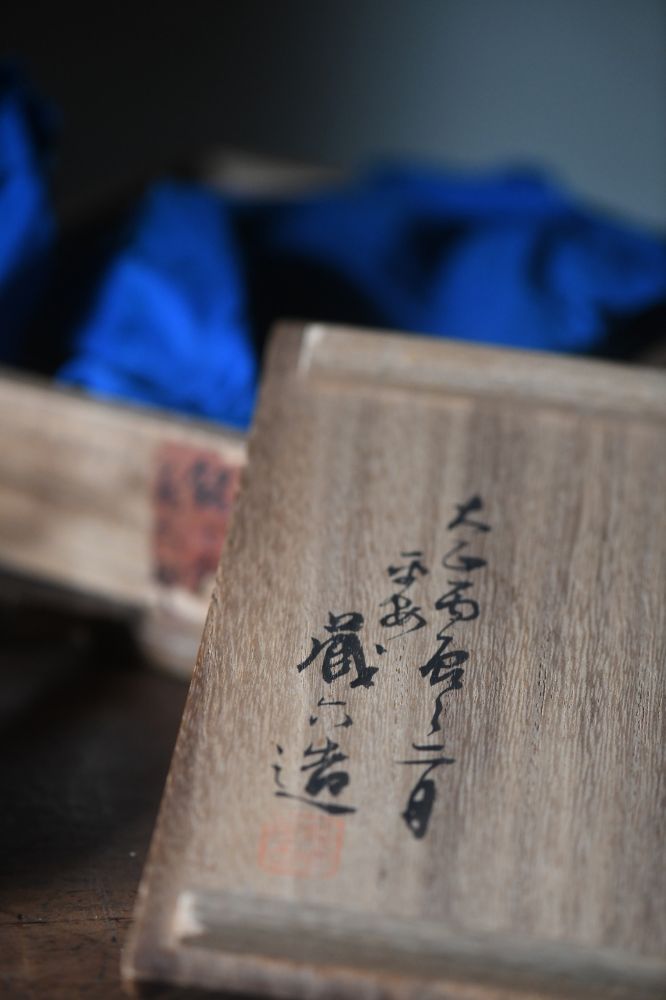 大正丙辰之二月
平安
藏六造